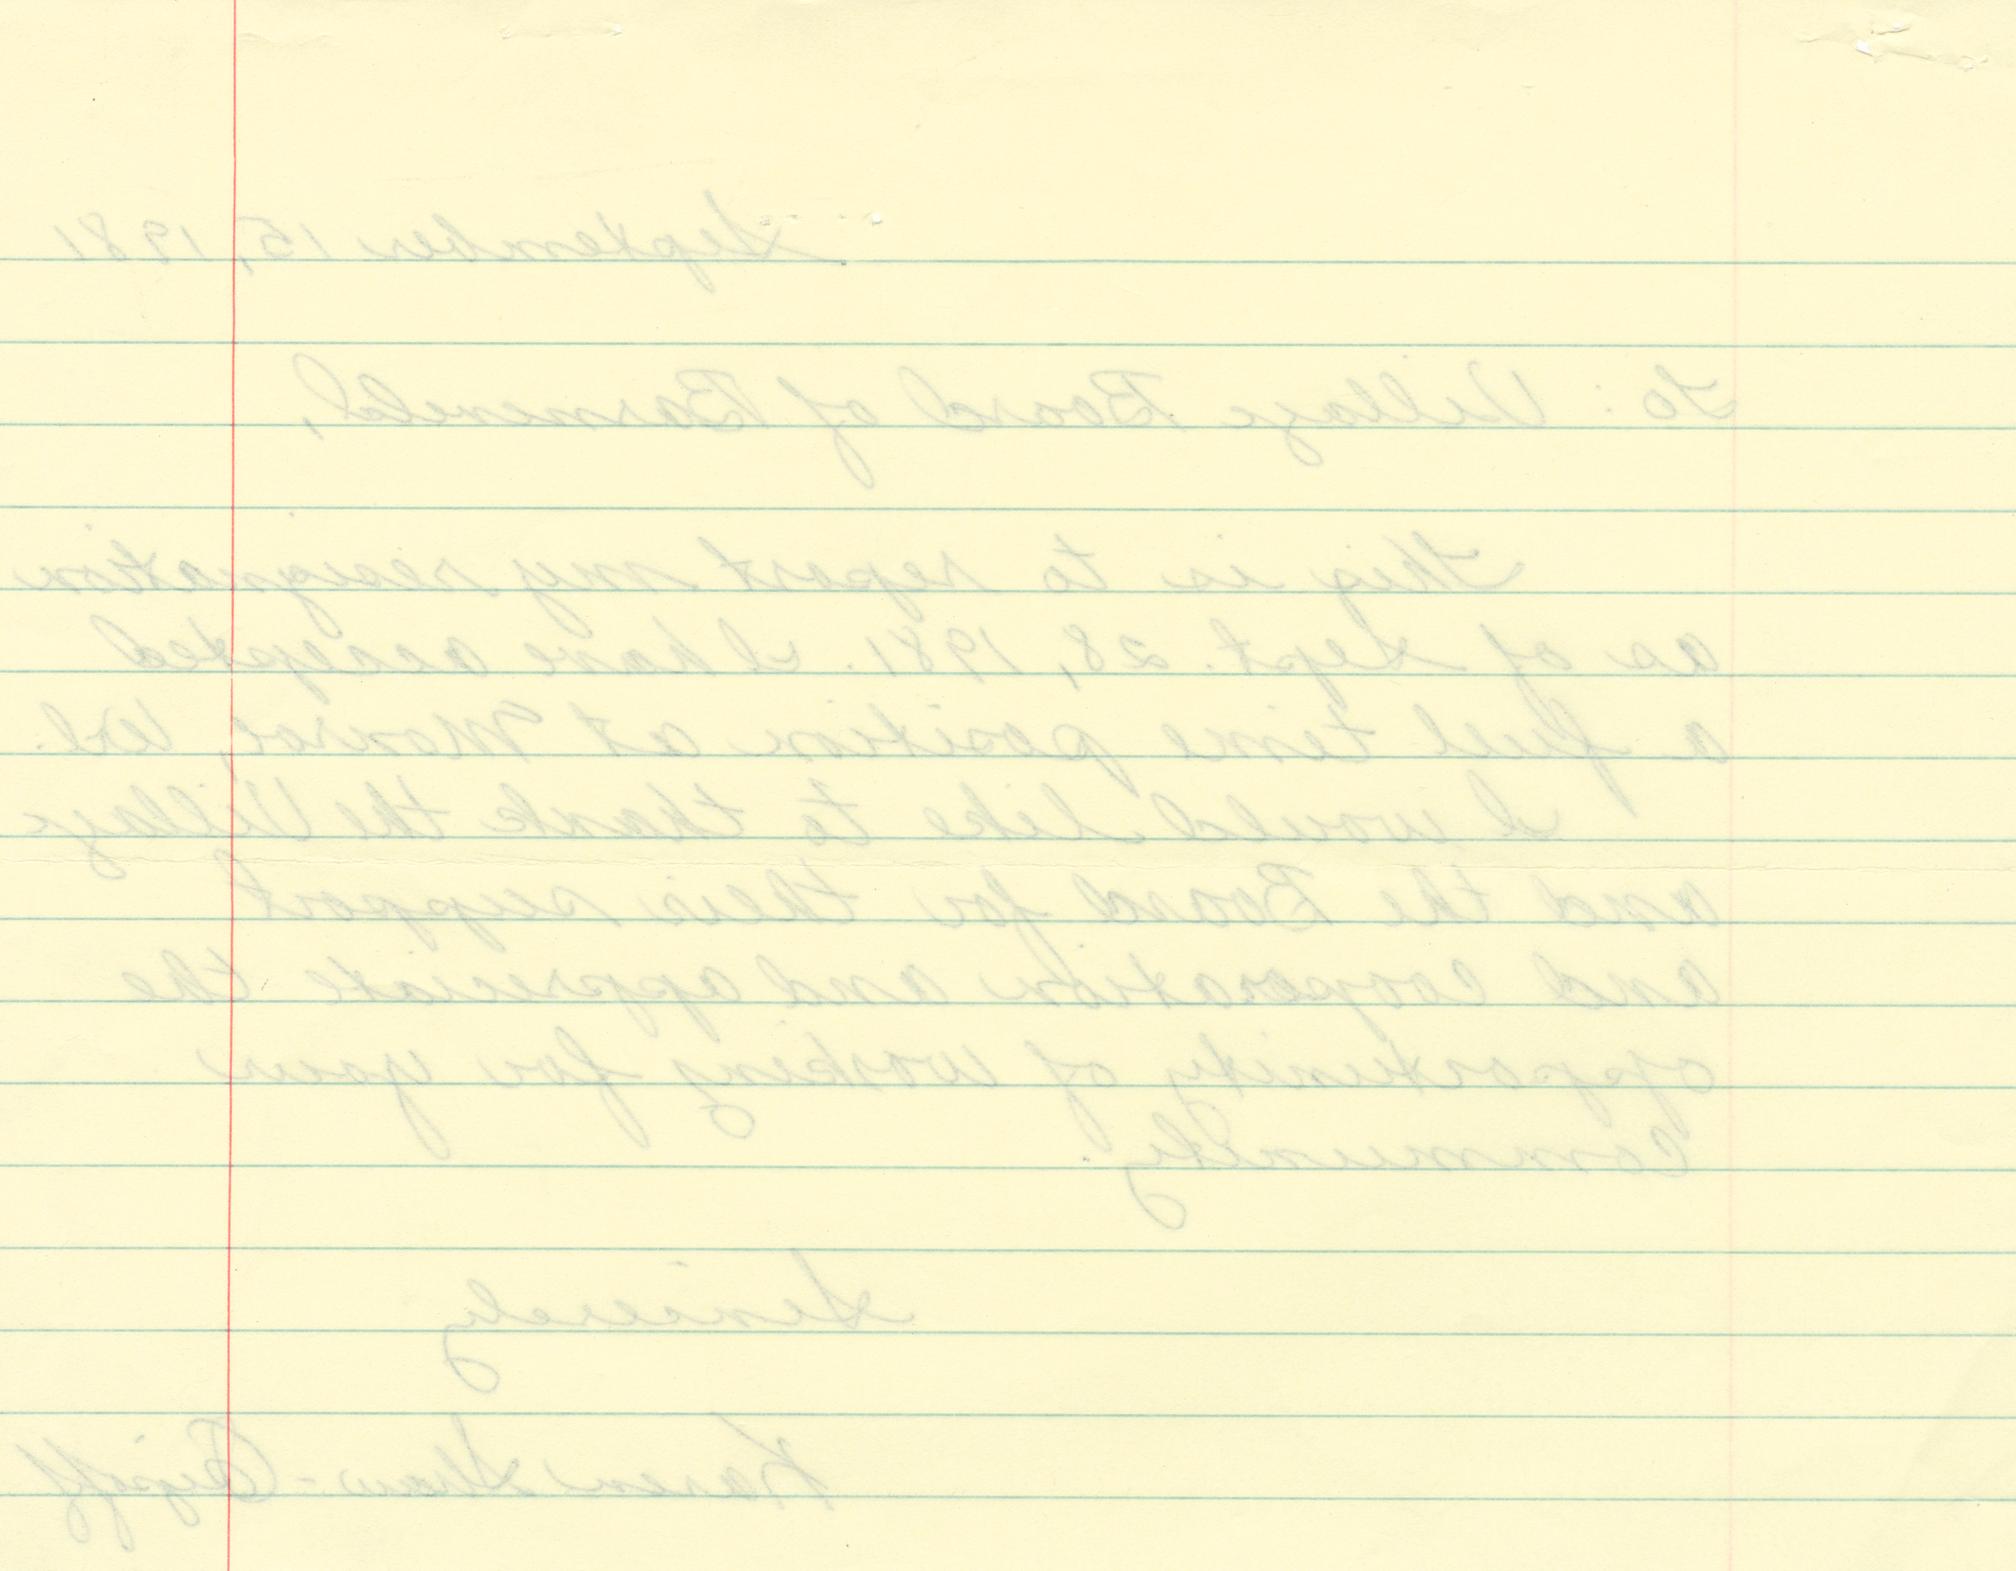 September 15, 1981
To: Village Board of Barneveld,
This is to report my resignation
as of Sept. 28, 1981. I have accepted
a full time position at Monroe, WI.
I would like to thank the Village
and the Board for their support
and cooperation and appreciate the
opportunity of working for your
Community.
Sincerely
Karen Shaw -